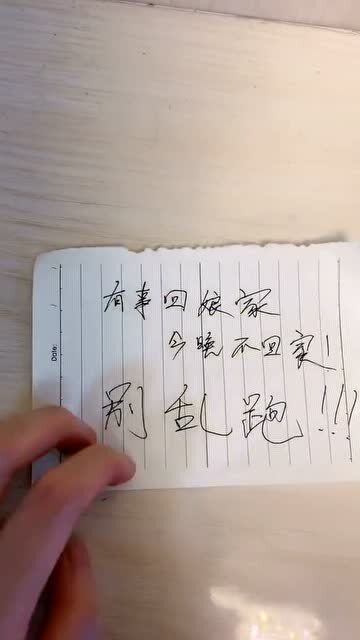 有事回娘家
今晚不回家!
别乱跑!!!
Date: